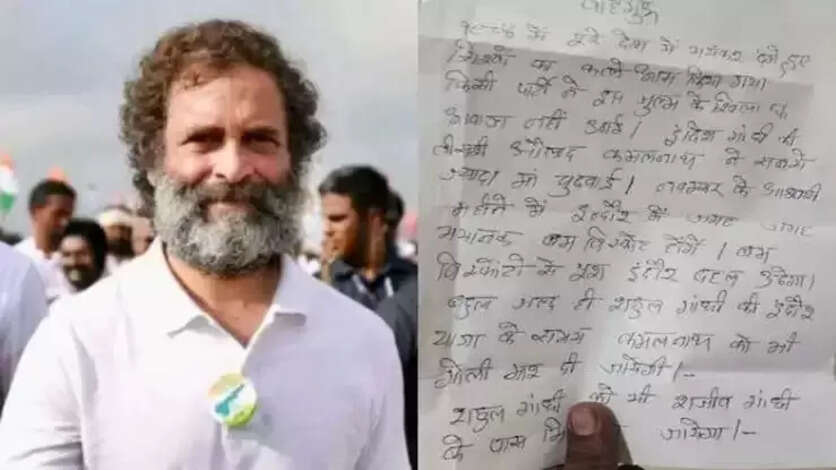 वाहेगुरु
में पूरे देश में भयंकर दंगे हुए
सिक्खों का कत्ले आम किया गया
किसी पार्टी ने इस जुल्म के खिलाफ
आवाज नहीं उठाई। इंदिरा गांधी की
औलाद कमलनाथ ने सबसे
ज्यादा मां चुदवाई। नवम्बर के आखरी
महीने में इन्दौर में जगह जगह
भयानक बम विस्फोट होंगे। बम
विस्फोटों से पूरा इंदौर दहल उठेगा।
बहुत जल्द ही राहुल गांधी की इंदौर
यात्रा के समय कमलनाथ को भी
गोली मार दी जायेगी।-
राहुल गांधी को भी राजीव गांधी
के पास जायेगा।-